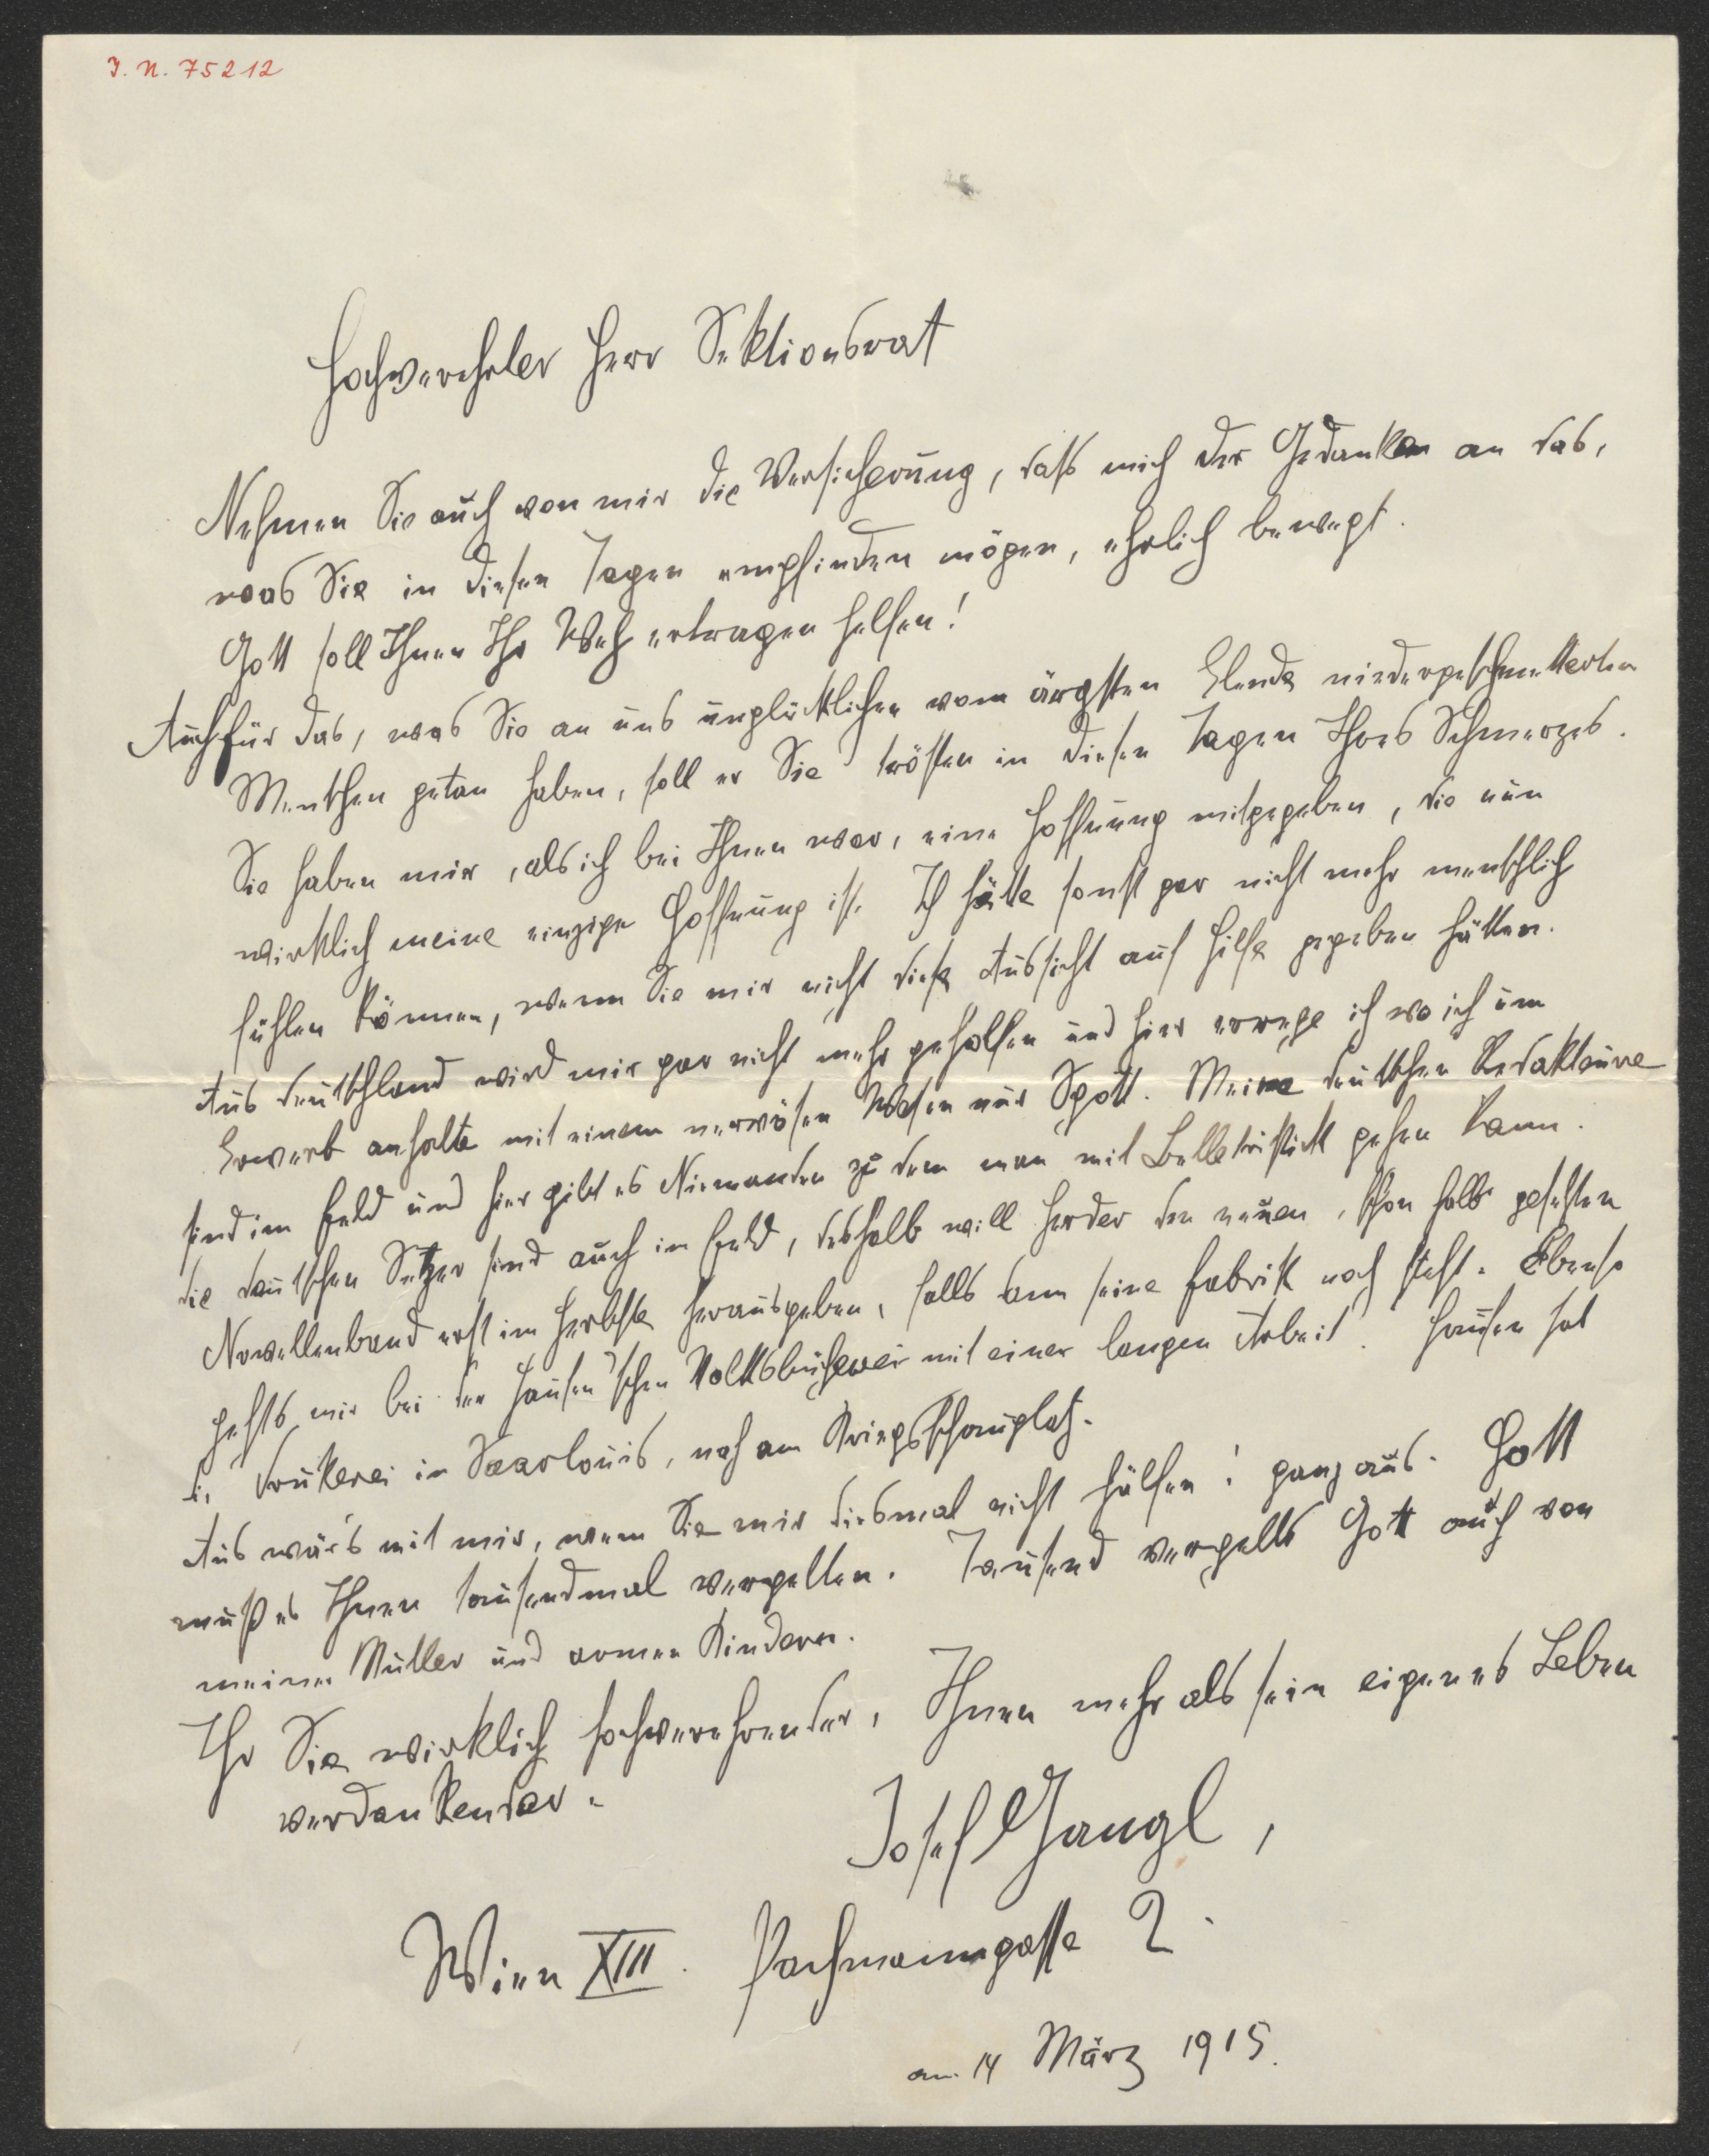 I. N. 75212
Hochverehrter Herr Sektionsrat
Nehmen Sie auch von mir die Versicherung, daß mich der Gedanken an das,
was Sie in diesen Tagen empfinden mögen, ehrlich bewegt.
Gott soll Ihnen Ihr Weh ertragen helfen!
Auch für das, was Sie an uns unglücklichen vom ärgsten Elende niedergeschmetterten
Menschen getan haben, soll er Sie trösten in diesen Tagen Ihres Schmerzes.
Sie haben mir, als ich bei Ihnen war, eine Hoffnung mitgegeben, die nun
wirklich meine einzige Hoffnung ist. Ich hätte sonst gar nicht mehr menschlich
fühlen können, wenn Sie mir nicht diese Aussicht auf Hilfe gegeben hätten.
Aus Deutschland wird mir gar nicht mehr geholfen und hier errege ich wo ich um
Erwerb anhalte mit einem nervösen Wesen nur Spott. Meine deutschen Redakteure
sind im Feld und hier gibt es Niemanden zu dem man mit Belletristik gehen kann.
Die deutschen Setzer sind auch im Feld, deshalb will Herder den neuen, schon halb gesetzten
Novellenband erst im Herbste herausgeben, falls dann seine Fabrik noch steht. Ebenso
gehts mir bei der Hausen'schen Volksbücherei mit einer langen Arbeit. Hausen hat
s. Druckerei in Saarlouis, nah am Kriegsschauplatz.
Aus wär's mit mir, wenn Sie mir diesmal nicht hülfen! ganz aus. Gott
muß es Ihnen tausendmal vergelten. Tausend vergelts Gott auch von
meiner Mutter und armen Kindern.
Ihr Sie wirklich hochverehrender, Ihnen mehr als sein eigenes Leben
verdankender.
Josef Gangl,
Wien XIII. Pachmanngasse 2.
am 14 März 1915.